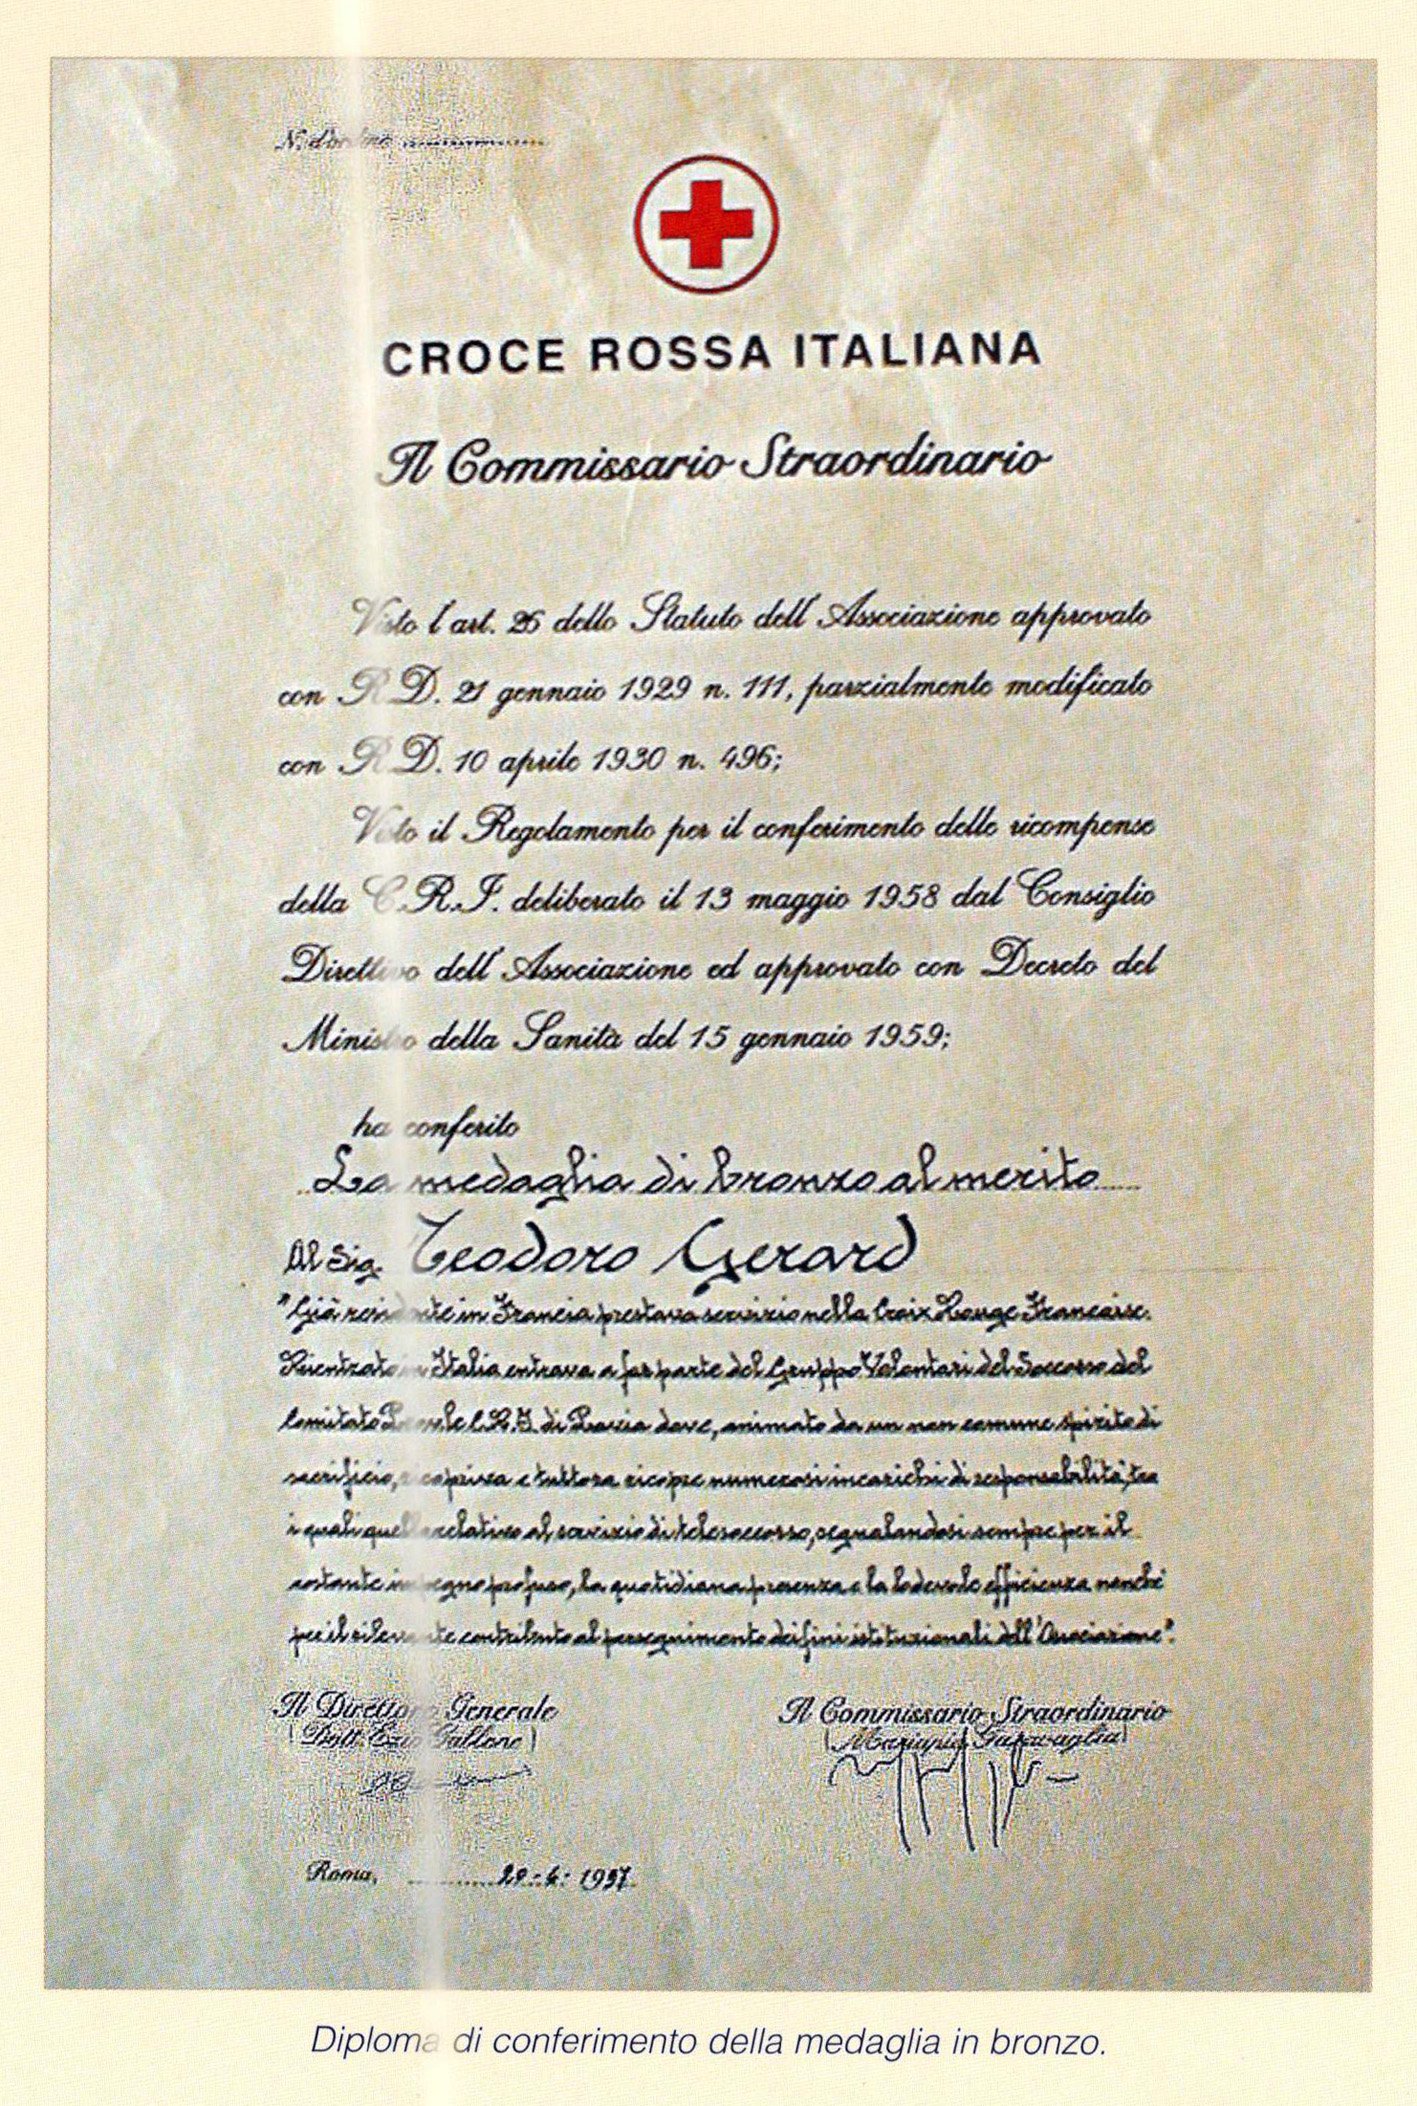 N. d'ordine
CROCE ROSSA ITALIANA
Il Commissario Straordinario
Visto l'art. 26 dello Statuto dell'Associazione approvato
con R.D. 21 gennaio 1929 n. 111, parzialmente modificato
con R.D. 10 aprile 1930 n. 496;
Visto il Regolamento per il conferimento delle ricompense
della C.R.I. deliberato il 13 maggio 1958 dal Consiglio
Direttivo dell'Associazione ed approvato con Decreto del
Ministro della Sanità del 15 gennaio 1959;
ha conferito
La medaglia di bronzo al merito
Al Sig. Teodoro Gerard
"Già residente in Francia prestava servizio nella Croix Rouge Francaise.
Rientrato in Italia entrava a far parte del Gruppo Volontari del Soccorso del
Comitato C.R.I. di dove, animato da un non comune spirito di
sacrificio, ricopriva e tuttora ricopre numerosi incarichi di responsabilità, tra
i quali quello relativo al servizio di telesoccorso, segnalandosi sempre per il
costante impegno profuso, la quotidiana presenza e la lodevole efficienza nonché
per il rilevante contributo al perseguimento dei fini istituzionali dell'Associazione".
Il Direttore Generale
Il Commissario Straordinario
(Dott. Gallone)
(Mariapia Garavaglia)
Roma, 1997
Diploma di conferimento della medaglia in bronzo.